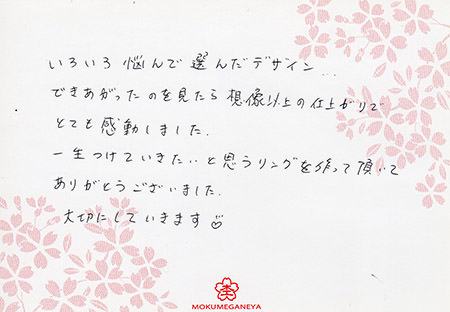 いろいろ悩んで選んだデザイン...
できあがったのを見たら想像以上の仕上がりで
とても感動しました.
一生つけていきたい..と思うリングを作って頂いて
ありがとうございました.
大切にしていきます♡
MOKUMEGANEYA